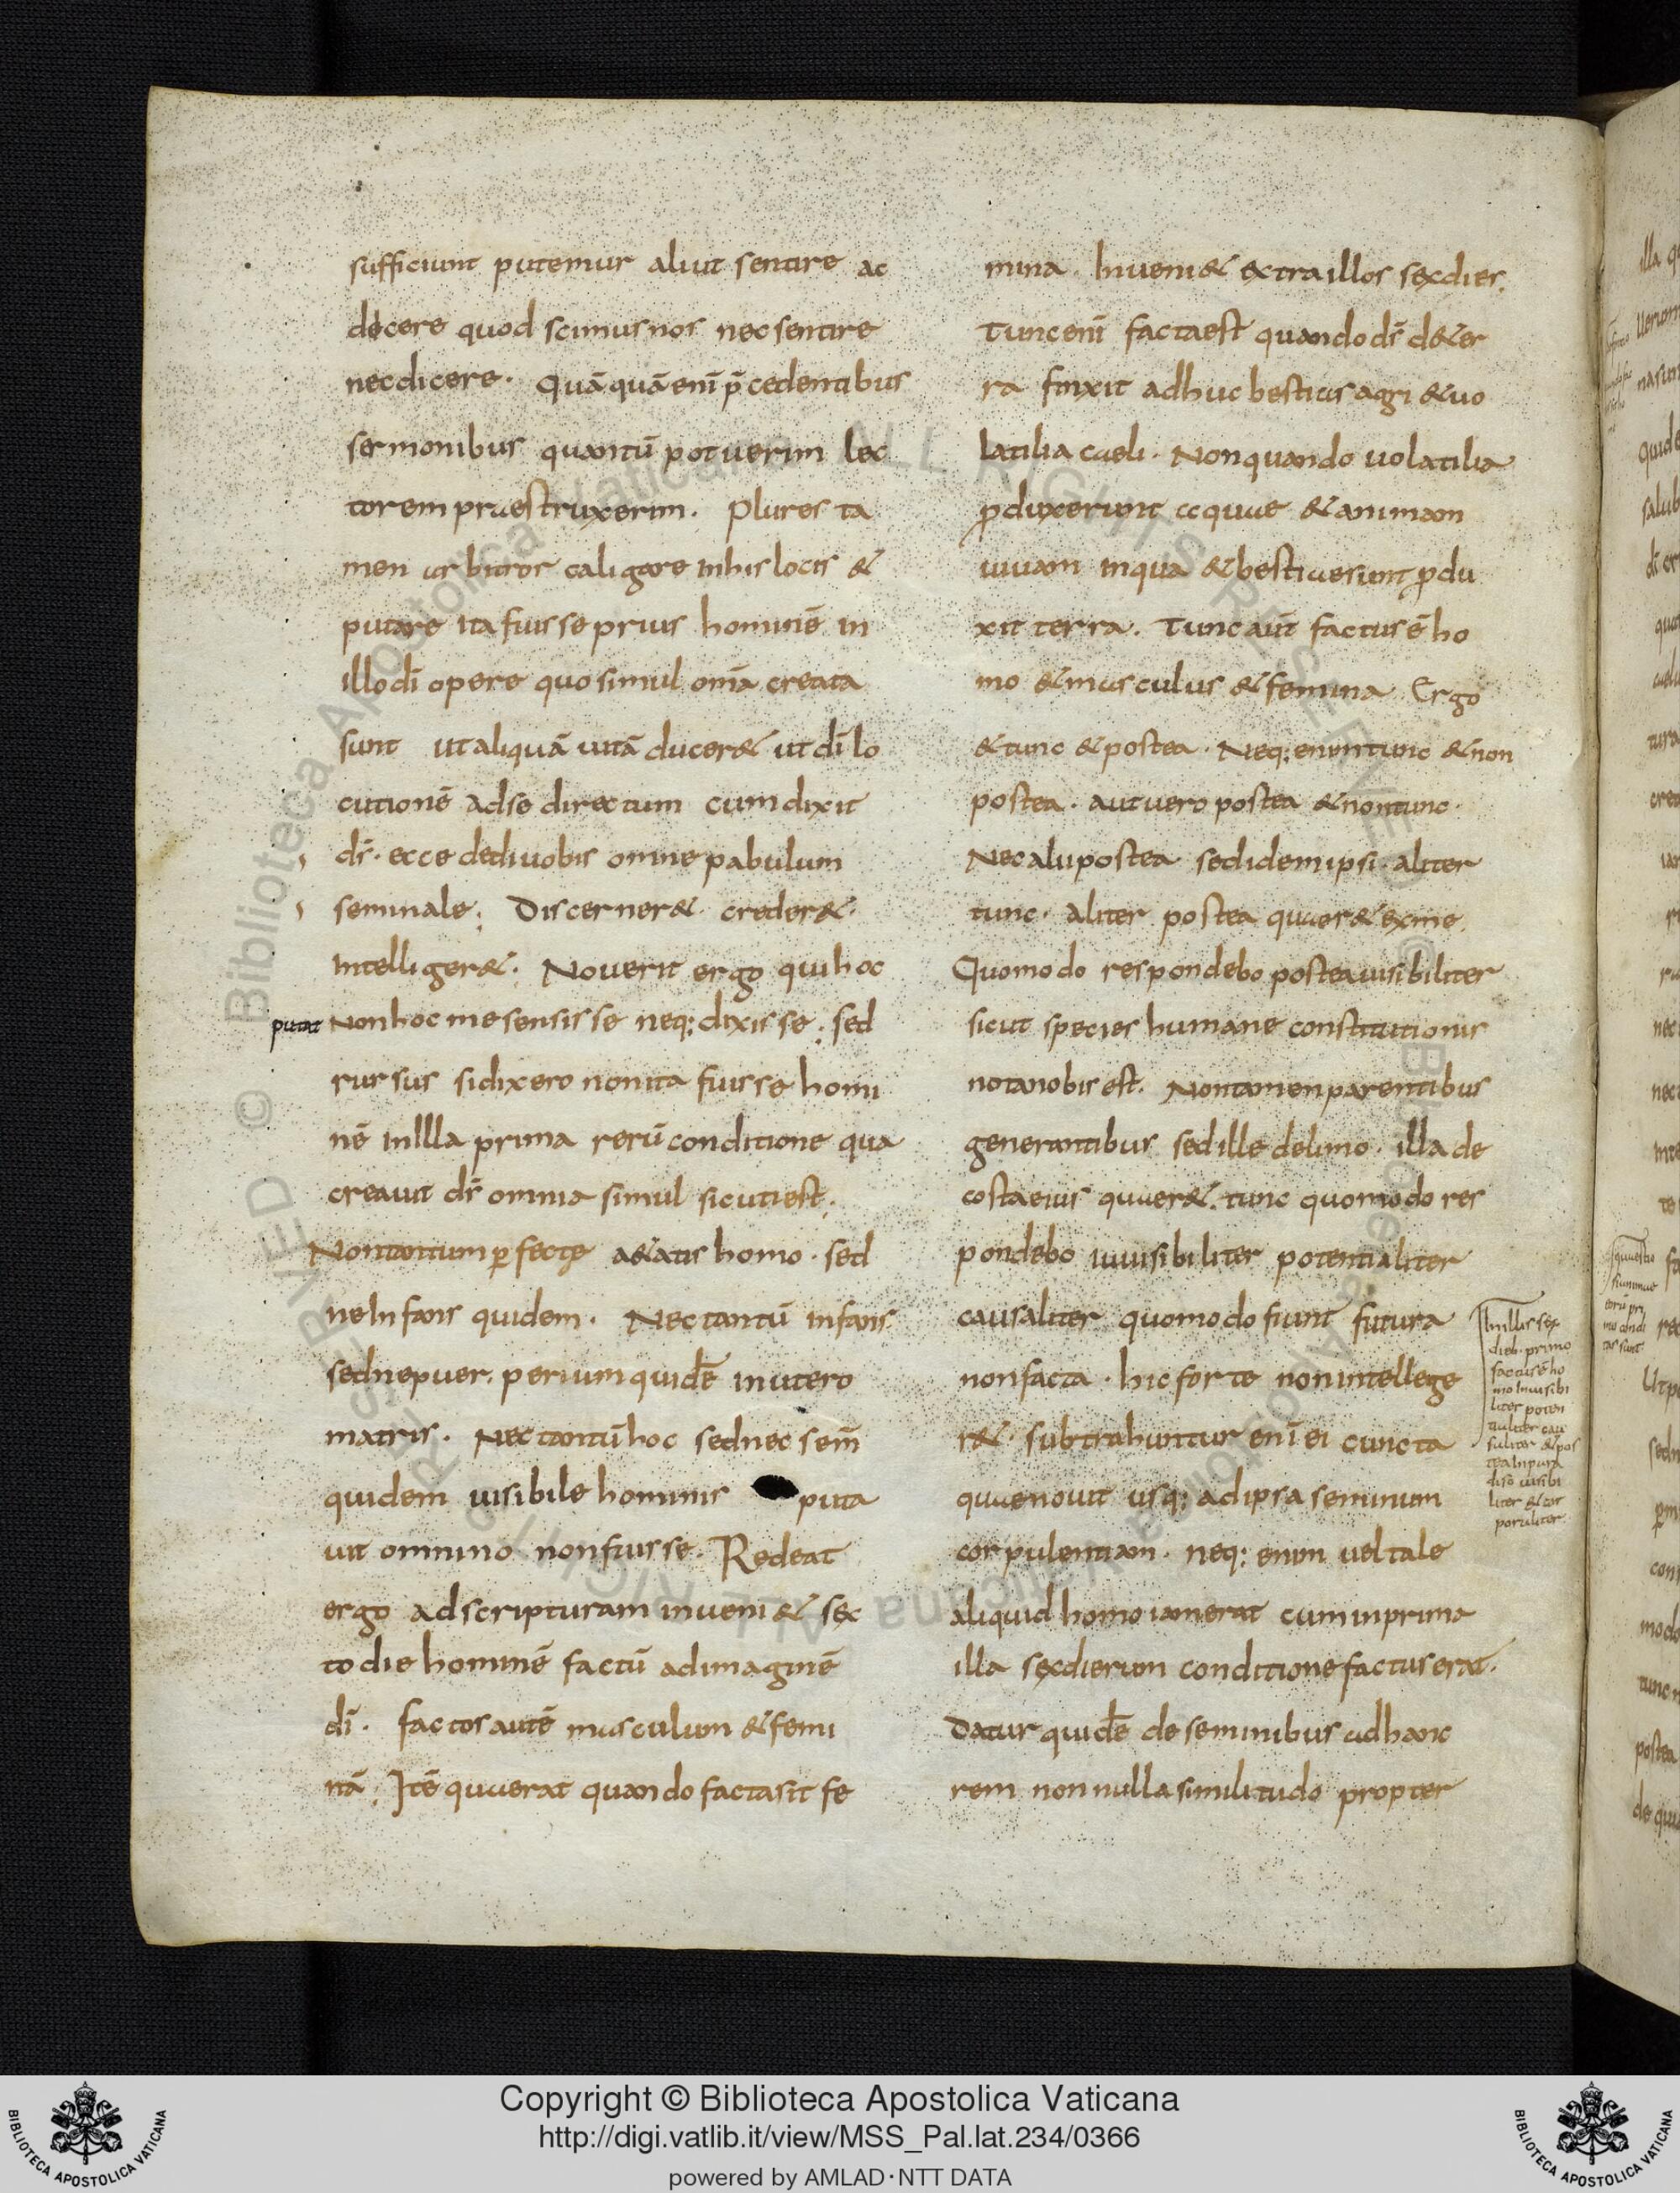 sufficiunt putemur aliut sentire ac
dicere quod scimus nos nec sentire
nec dicere. Quā quā enī p̄cedentibus
sermonibus quantū potuerim lec
torem praestruxerim. Plures ta
men arbitror caligare in his locis &
putare ita fuisse prius hominē in
illo dī opere quo simul om̄a creata
sunt ut aliquā uitā ducer& ut dī lo
cutionē ad se directum cum dixit
dš. ecce dedi uobis omne pabulum
seminale; Discerner& creder&
intelliger&; Nouerit ergo qui hoc
putat Non hoc me sensisse neq; dixisse; sed
rursus si dixero non ita fuisse homi
nē in illa prima rerū conditione qua
creauit dš omnia simul sicuti est;
Non tantum pfecte a&atis homo. sed
ne infans quidem. Nec tantū infans
sed ne puer. perium quidē in utero
matris. Nec tantū hoc sed nec sem̄
quidem uisibile hominis puta
uit omnino non fuisse. Redeat
ergo ad scripturam inueni& sex
to die hominē factū ad imaginē
dī. factos autē masculum & femi
nā; Itē quaerat quando facta sit fe
mina. Inueni& extra illos sex dies.
Tunc enī facta est quando dš de ter
ra finxit adhuc bestias agri & uo
latilia caeli. Non quando uolatilia
pduxerunt aquae & animam
uiuam in qua & bestiae sunt pdu
xit terra. Tunc aūt factus ē ho
mo & masculus & femina Ergo
& tunc & postea. Neq; enim tunc & non
postea. aut uero postea & non tunc.
Nec alii postea sed idem ipsi. aliter
tunc. aliter postea quaer& ex me.
Quomodo respondebo postea uisibiliter
sicut species humane constitutionis
nota nobis est. Non tamen parentibus
generantibus sed ille de limo. illa de
costa eius quaer&. tunc quomodo res
pondebo inuisibiliter potentialiter
causaliter quomodo fiunt futura
non facta. hic forte non intellege
r&. subtrahuntur enī ei cuncta
quae nouit usq; ad ipsa seminum
corpulentiam. neq; enim uel tale
aliquid homo iam erat cum in prima
illa sex dierum conditione factus erat.
Datur quidē de seminibus ad hanc
rem non nulla similitudo propter
In illis sex
dieb. primo
factus ē ho
mo inuisibi
liter poten
tialiter cau
saliter & pos
tea in para
diso uisibi
liter & cor
poraliter
© Biblioteca Apostolica Vaticana ALL RIGHTS RESERVED
Copyright © Biblioteca Apostolica Vaticana
http://digi.vatlib.it/view/MSS_Pal.lat.234/0366
powered by AMLAD·NTT DATA
BIBLIOTECA APOSTOLICA VATICANA
BIBLIOTECA APOSTOLICA VATICANA